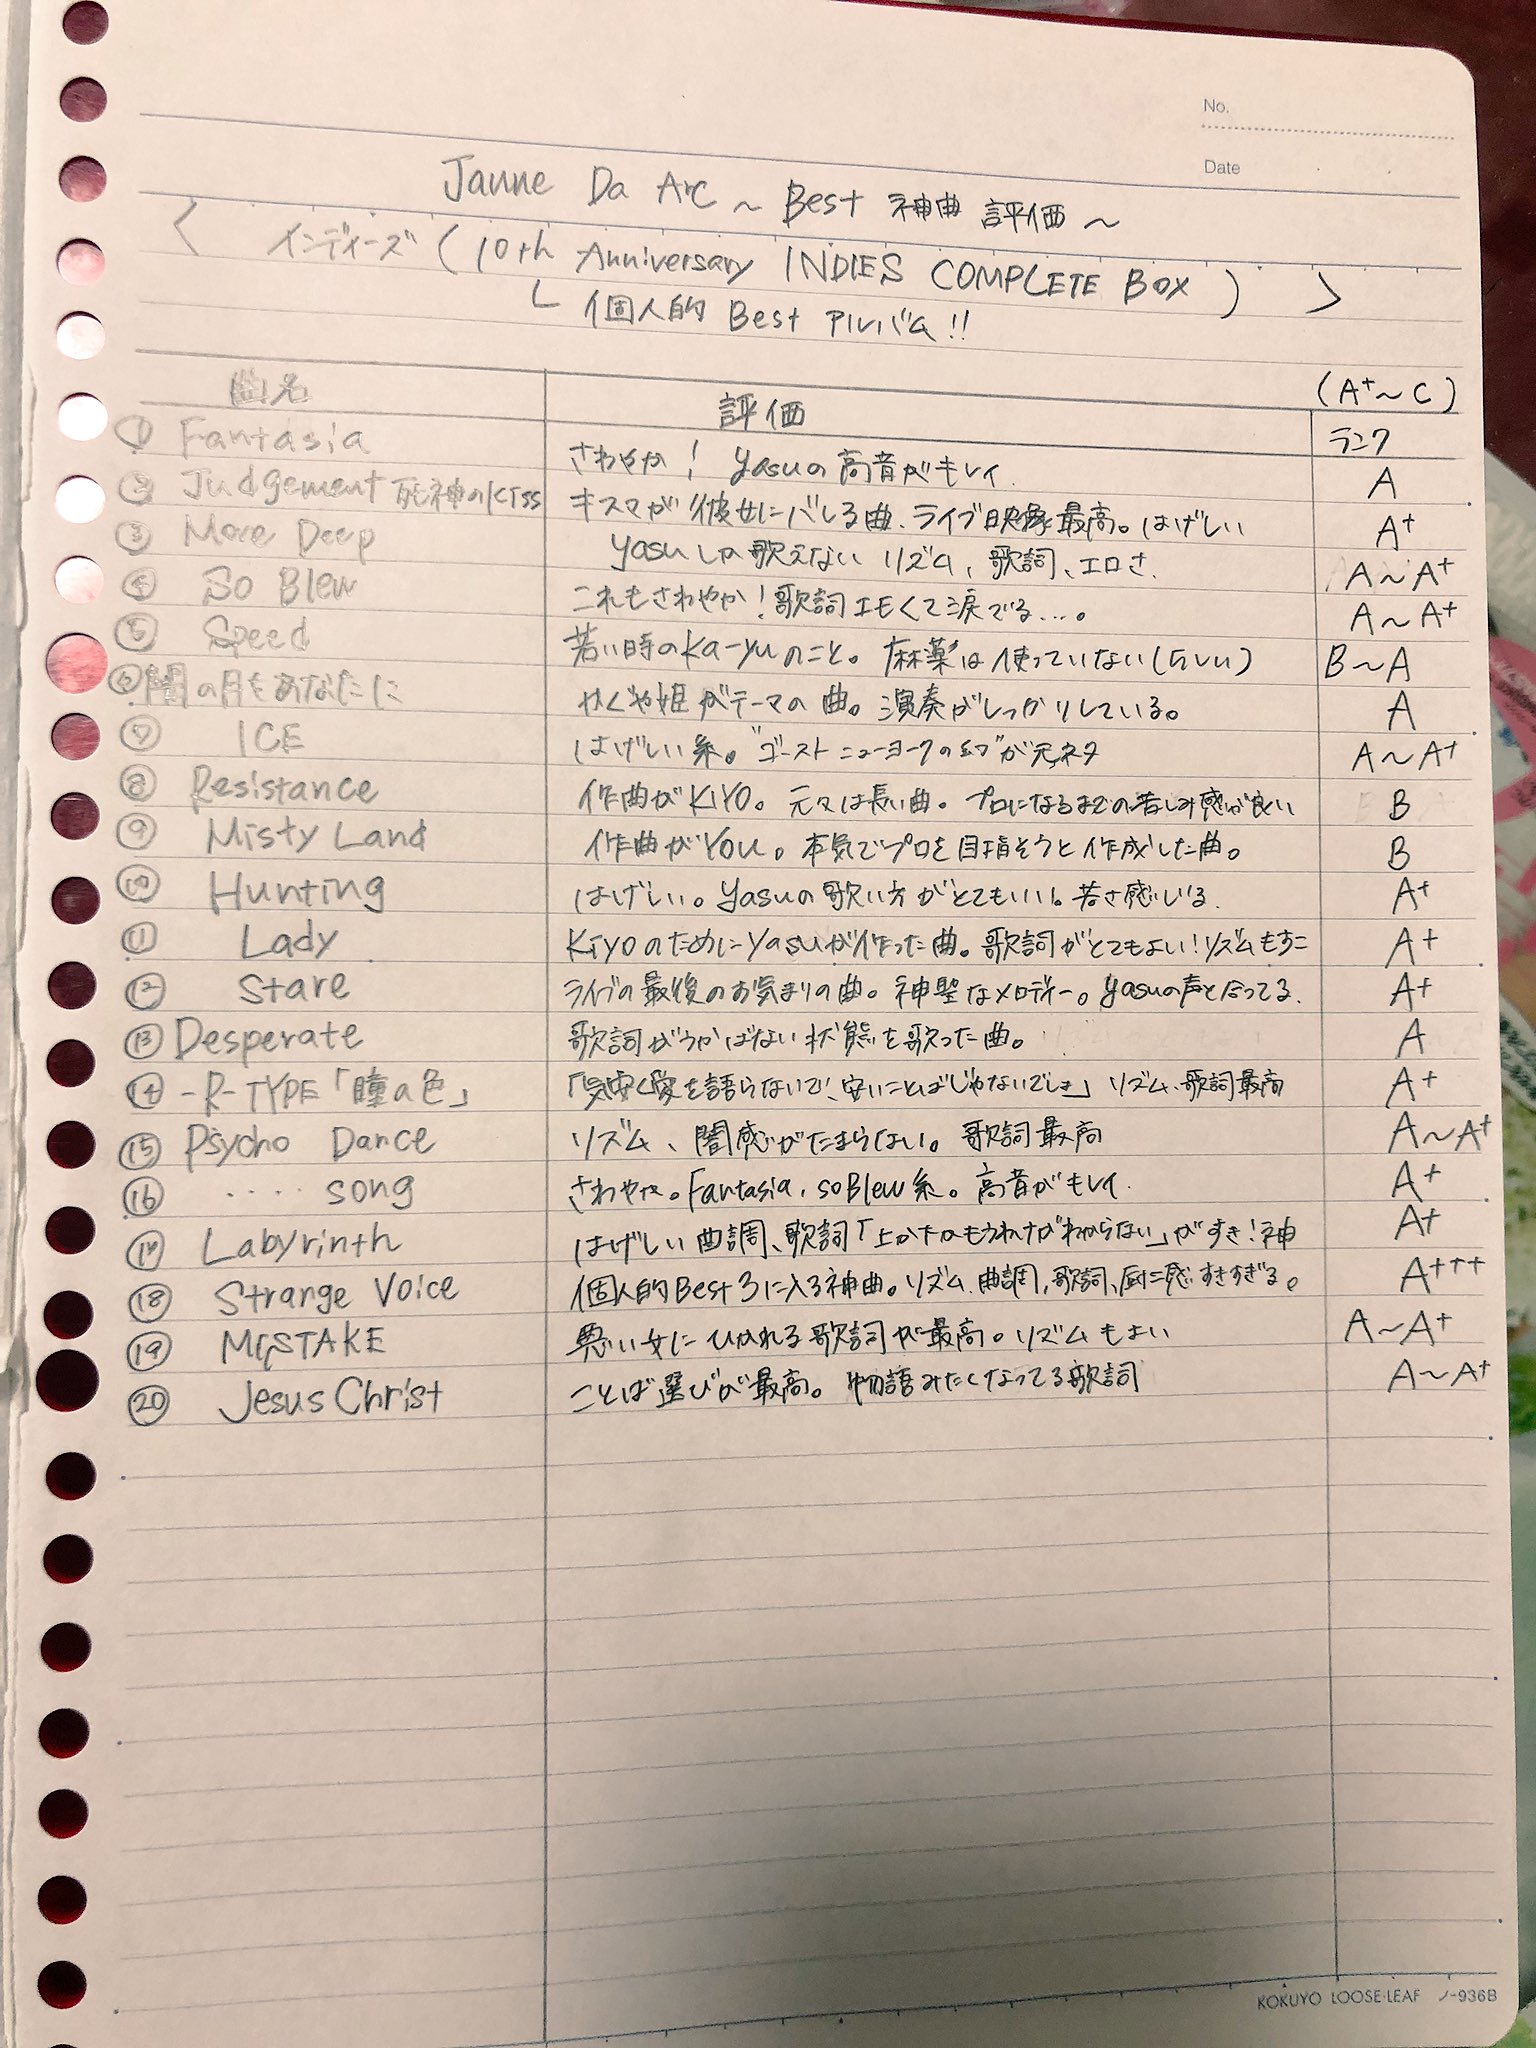 No.
Date
Janne Da Arc ~ Best 神曲 評価 ~
< インディーズ (10th Anniversary INDIES COMPLETE BOX) >
└ 個人的 Best アルバム!!
曲名 評価 (A+~C) ランク
① Fantasia さわやか! yasuの高音がキレイ. A
② Judgement 死神のKISS キスマが彼女にバレる曲、ライブ映像最高。はげしい A+
③ More Deep yasuしか歌えない リズム、歌詞、エロさ. A~A+
④ So Blew これもさわやか!歌詞エモくて涙でる...。 A~A+
⑤ Speed 若い時のKa-yuのこと。麻薬は使っていない(らしい) B~A
⑥ 闇の月をあなたに かぐや姫がテーマの曲。演奏がしっかりしている。 A
⑦ ICE はげしい系。"ゴーストニューヨークの幻"が元ネタ A~A+
⑧ Resistance 作曲がKIYO。元々は長い曲。プロになるまでの苦しみ感が良い B
⑨ Misty Land 作曲がYOU。本気でプロを目指そうと作成した曲。 B
⑩ Hunting はげしい。yasuの歌い方がとてもいい。若さ感じる. A+
⑪ Lady Kiyoのためにyasuが作った曲。歌詞がとてもよい!リズムもすこ A+
⑫ Stare ライブの最後のお気まりの曲。神聖なメロディー。yasuの声と合ってる. A+
⑬ Desperate 歌詞がうかばない状態を歌った曲。 A
⑭ -R-TYPE「瞳の色」 「気安く愛を語らないで、安いことばじゃないでしょ」リズム、歌詞最高 A+
⑮ Psycho Dance リズム、闇感がたまらない。歌詞最高 A~A+
⑯ .... song さわやか。Fantasia, so Blew系。高音がキレイ. A+
⑰ Labyrinth はげしい曲調、歌詞「上か下かもうわけがわからない」がすき!神 A+
⑱ Strange Voice 個人的Best3に入る神曲。リズム、曲調、歌詞、すきすぎる。 A+++
⑲ MISTAKE 悪い女にひかれる歌詞が最高。リズムもよい A~A+
⑳ Jesus Christ ことば選びが最高。物語みたくなってる歌詞 A~A+
KOKUYO LOOSE-LEAF ノ-936B